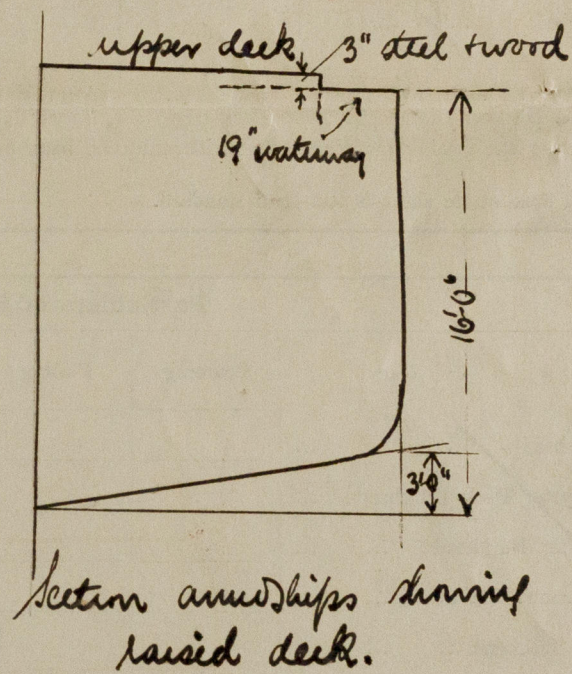 upper deck 3" steel & wood
19" waterway
16'-0"
3'0"
Section amidships showing
raised deck.